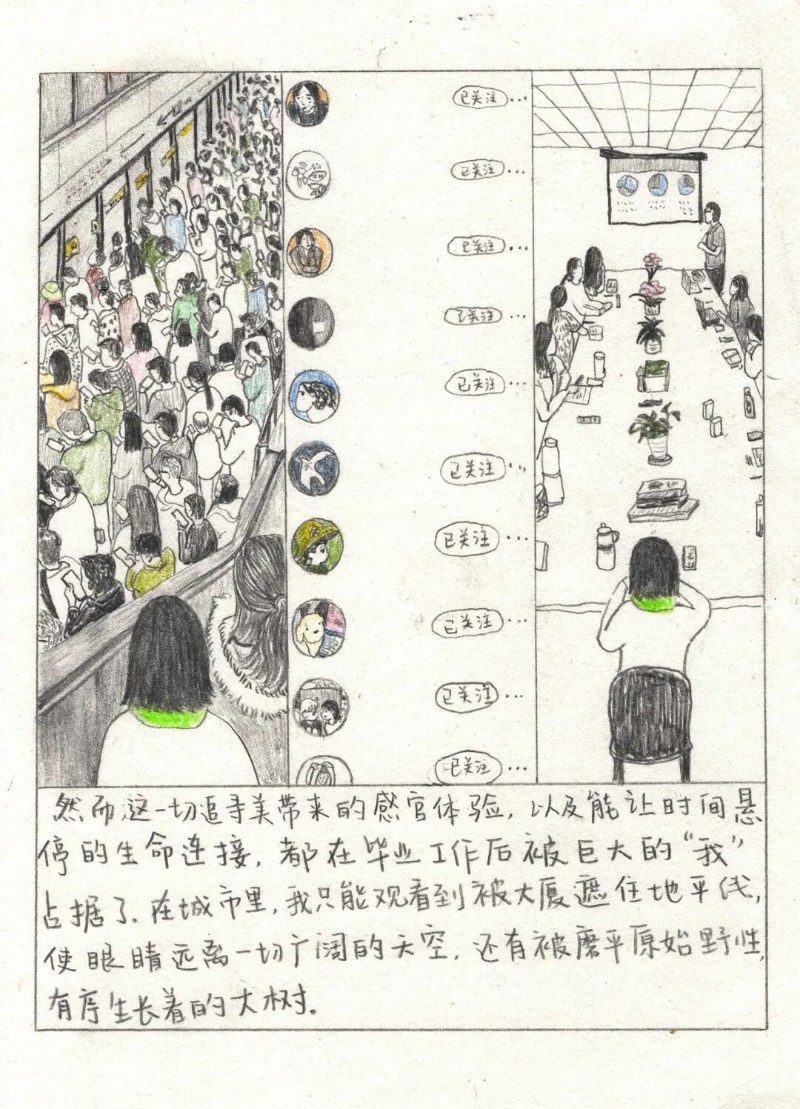 已关注...
已关注...
已关注...
已关注...
已关注...
已关注...
已关注...
已关注...
已关注...
已关注...
然而这一切追寻美带来的感官体验，以及能让时间悬
停的生命连接，都在毕业工作后被巨大的“我”
占据了.在城市里，我只能观看到被大厦遮住地平线，
使眼睛远离一切广阔的天空.还有被磨平原始野性，
有序生长着的大树。